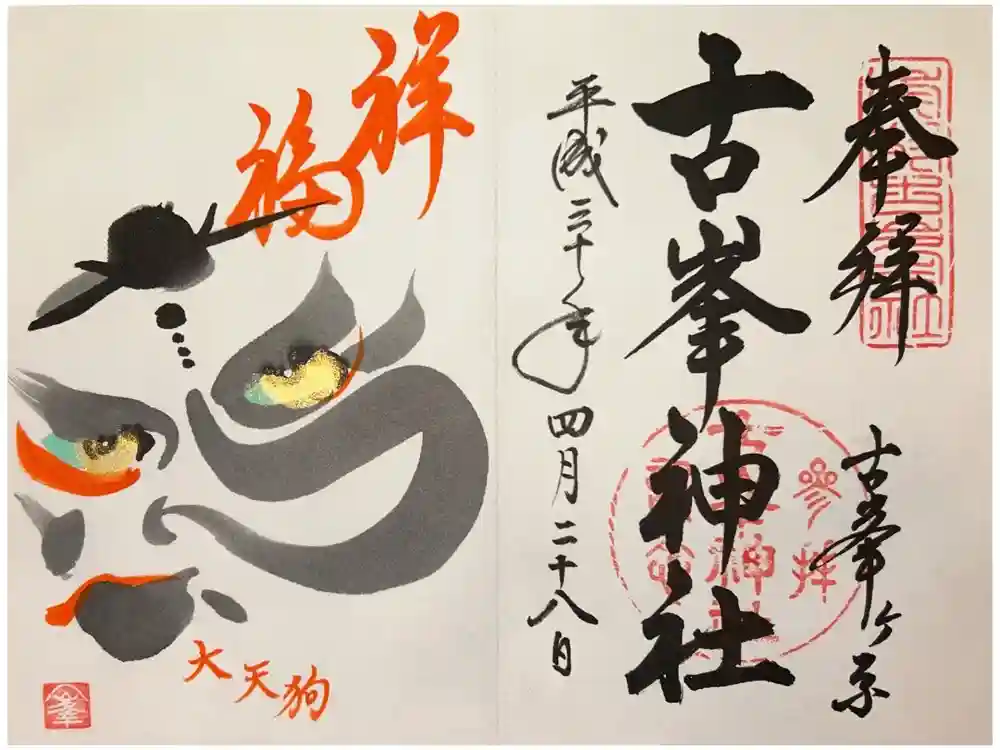 奉拝
古峯ヶ原
古峯神社
平成三十年四月二十八日
祥福
大天狗
参拝
峯